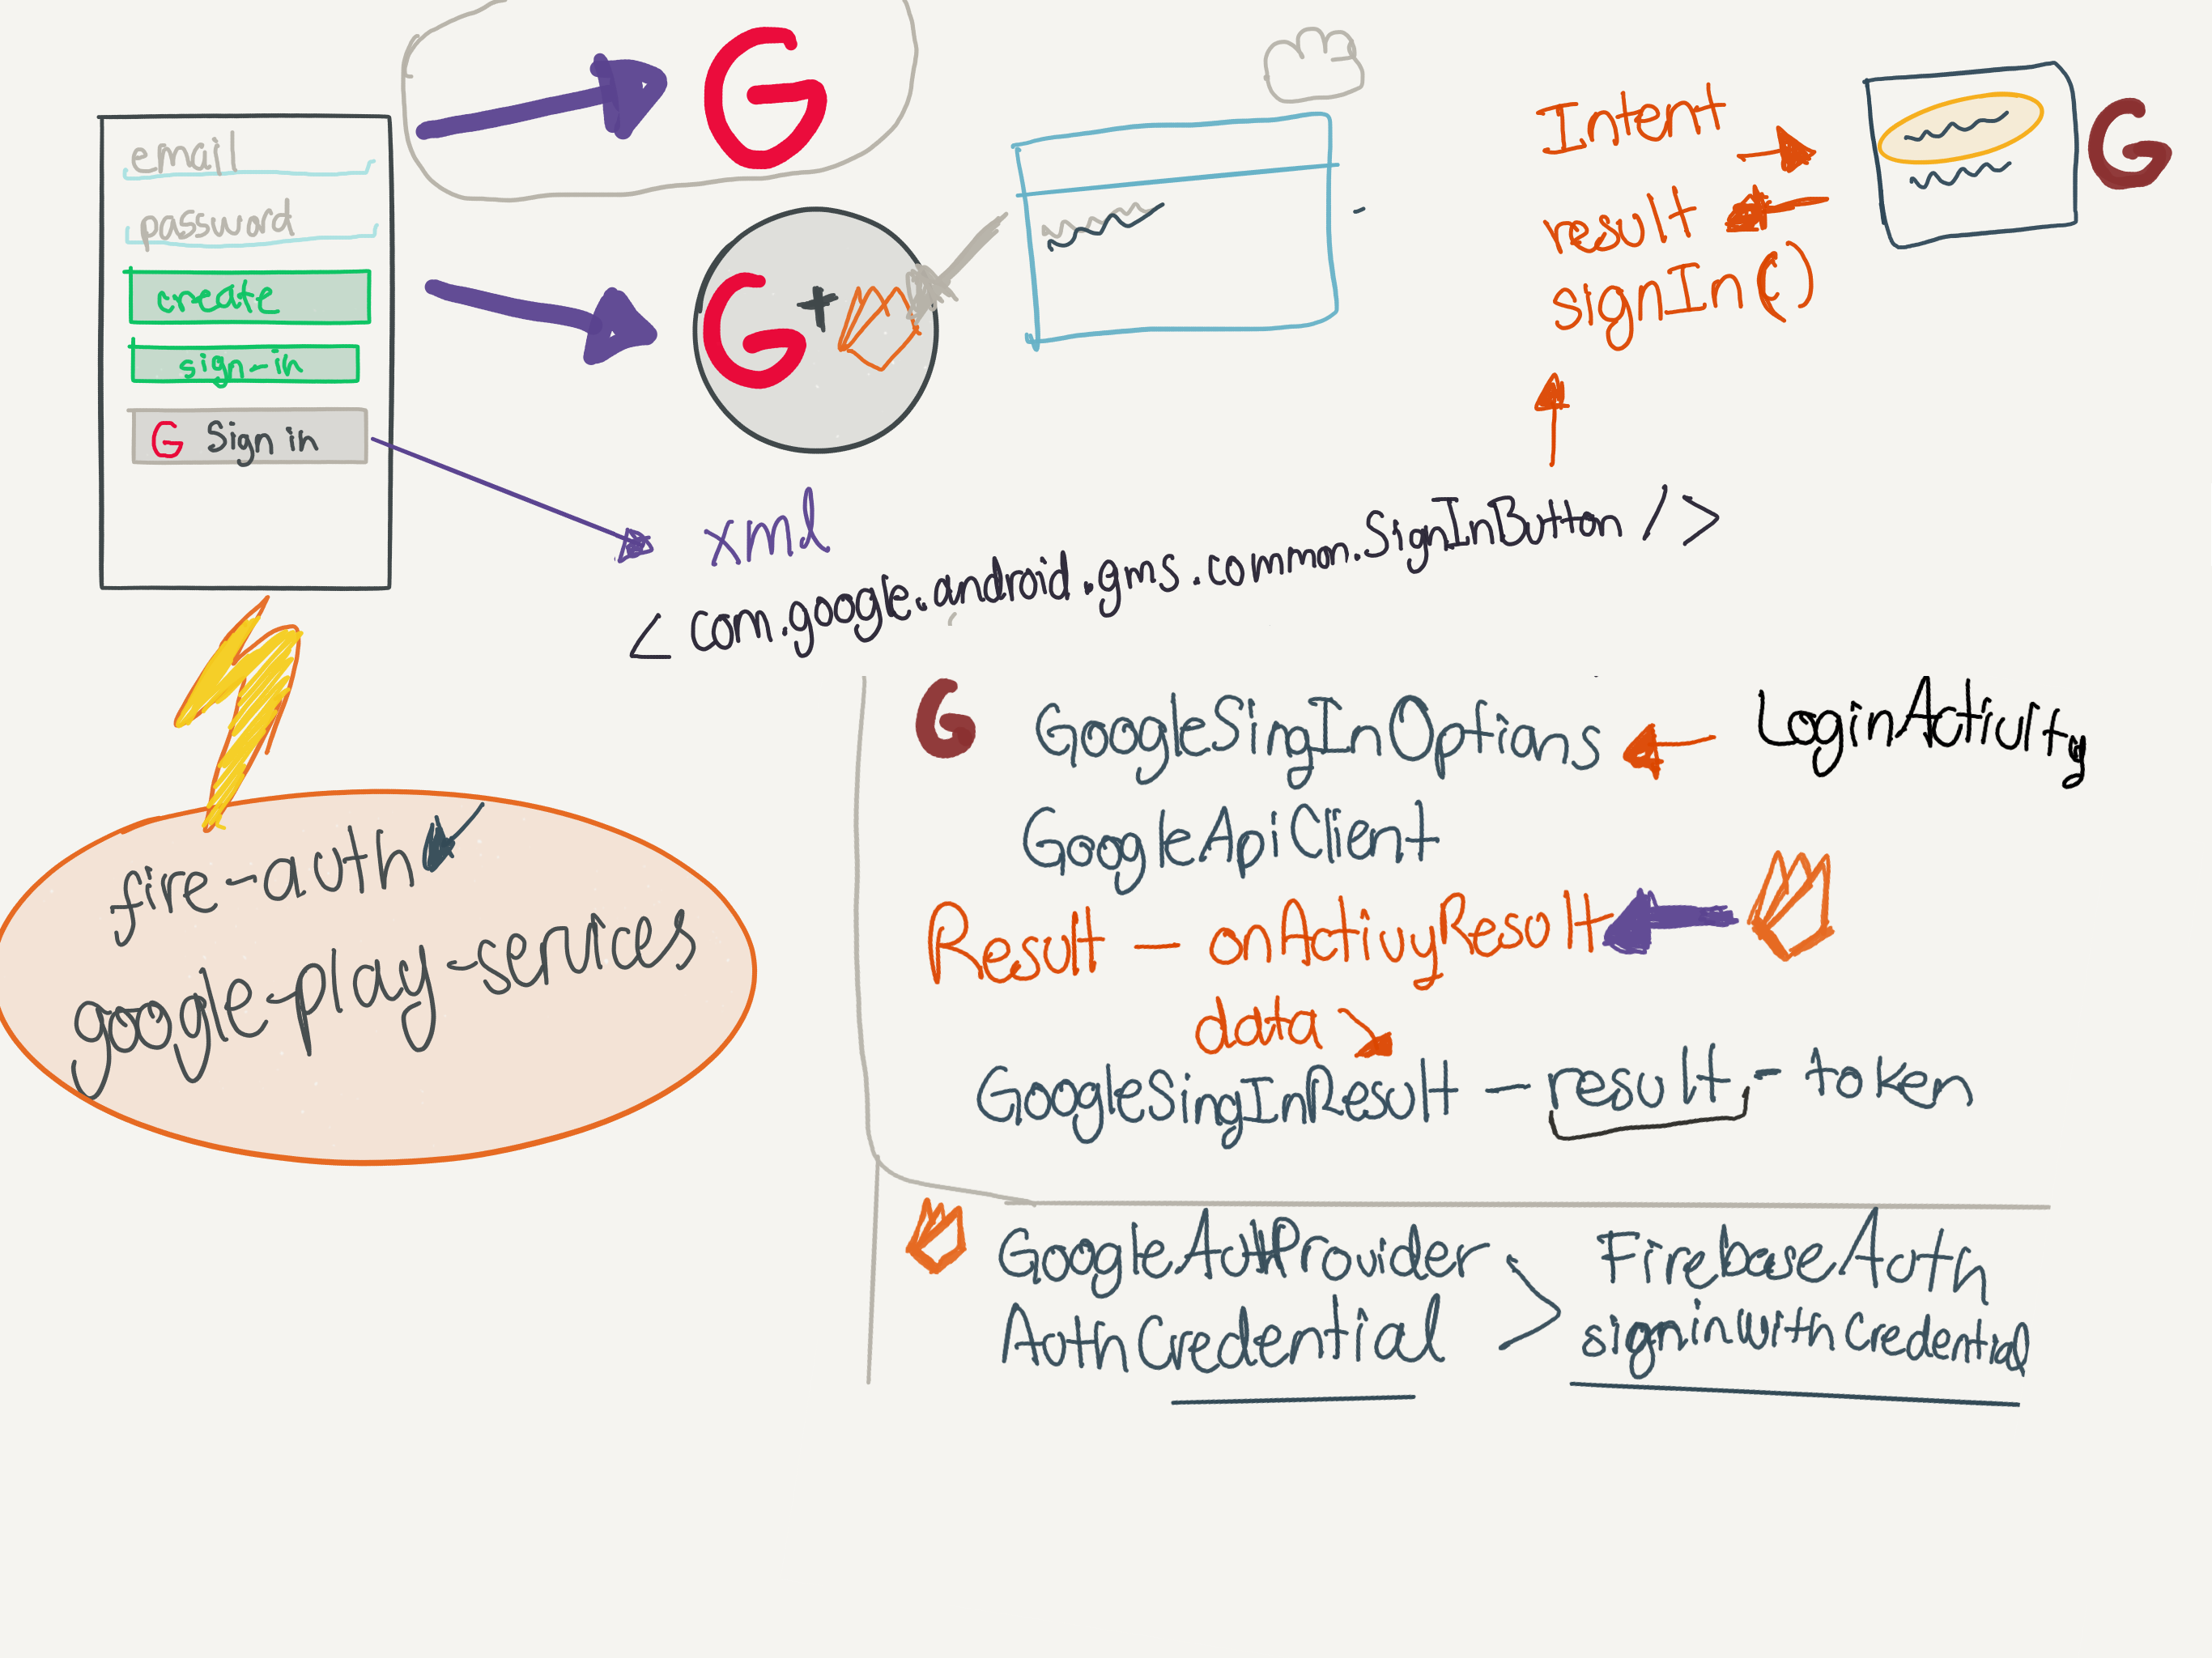 email
password
create
sign-in
G Sign in
G
G +
Intent
result
signIn()
G
xml
< com.google.android.gms.common.SignInButton />
fire-auth
google-play-services
G GoogleSingInOptions LoginActivity
GoogleApiClient
Result - onActivyResult
data
GoogleSingInResult - result - token
GoogleAuthProvider
AuthCredential
FirebaseAuth
signinwithCredential